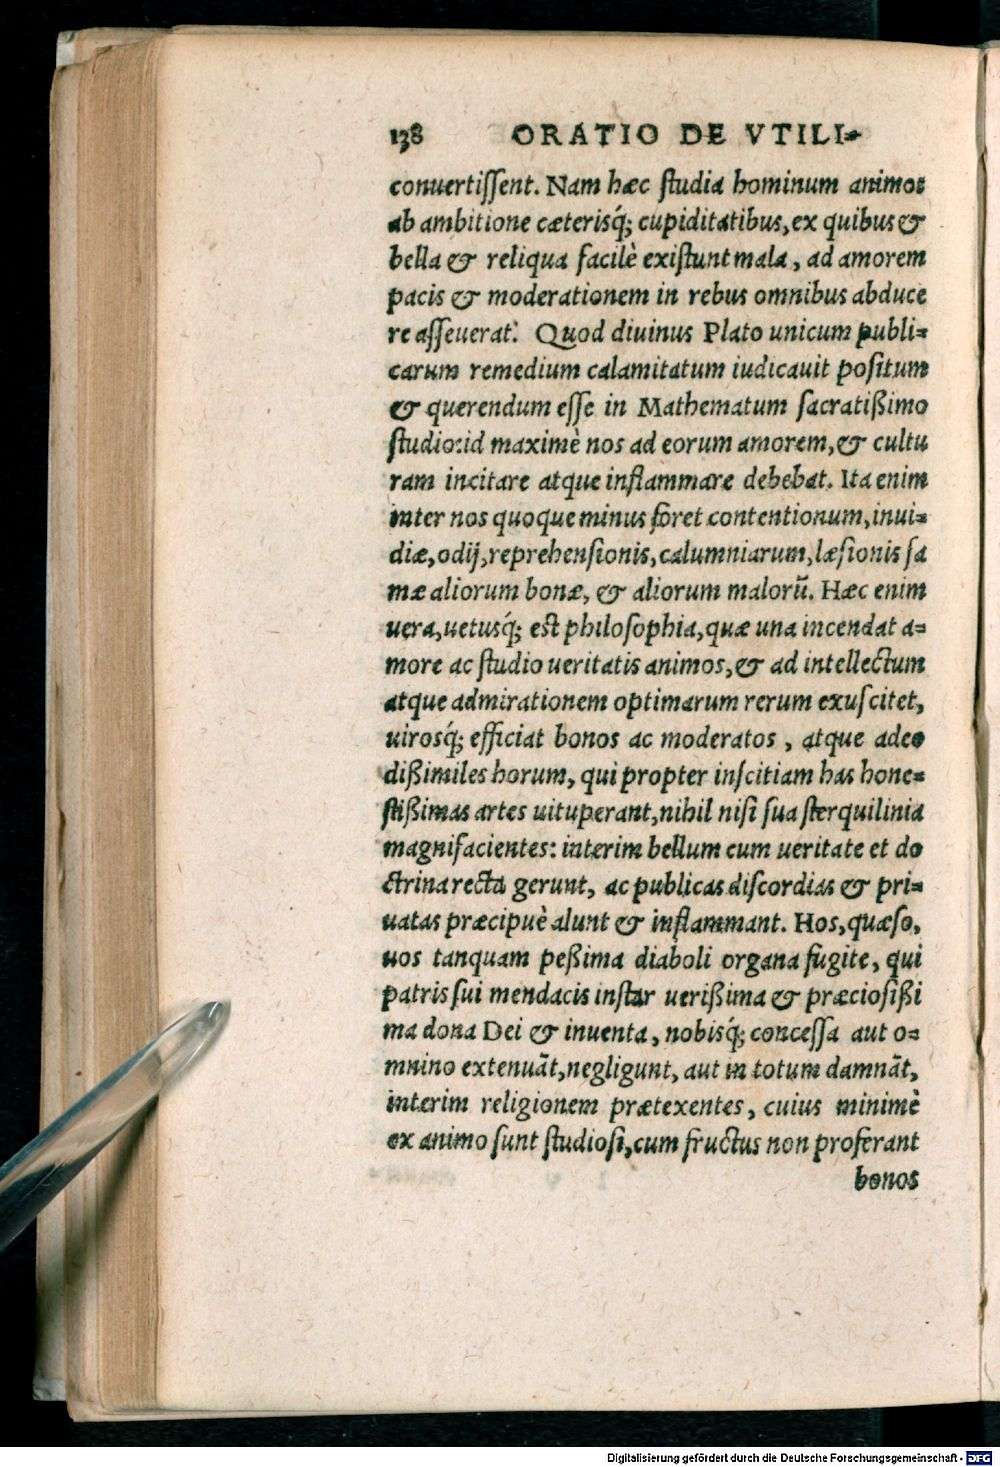 138 ORATIO DE VTILI-
conuertissent. Nam hæc studia hominum animos
ab ambitione cæterisq́; cupiditatibus, ex quibus &
bella & reliqua facilè existunt mala, ad amorem
pacis & moderationem in rebus omnibus abduce
re asseuerat. Quod diuinus Plato unicum publi-
carum remedium calamitatum iudicauit positum
& querendum esse in Mathematum sacratißimo
studio: id maximè nos ad eorum amorem, & cultu
ram incitare atque inflammare debebat. Ita enim
inter nos quoque minus foret contentionum, inui-
diæ, odij, reprehensionis, calumniarum, læsionis fa
mæ aliorum bonæ, & aliorum malorū. Hæc enim
uera, uetusq́; est philosophia, quæ una incendat a-
more ac studio ueritatis animos, & ad intellectum
atque admirationem optimarum rerum exuscitet,
uirosq́; efficiat bonos ac moderatos, atque adeo
dißimiles horum, qui propter inscitiam has hone-
stißimas artes uituperant, nihil nisi sua sterquilinia
magnifacientes: interim bellum cum ueritate et do
ctrina recta gerunt, ac publicas discordias & pri-
uatas præcipuè alunt & inflammant. Hos, quæso,
uos tanquam peßima diaboli organa fugite, qui
patris sui mendacis instar uerißima & præciosißi
ma dona Dei & inuenta, nobisq́; concessa aut o-
mnino extenuāt, negligunt, aut in totum damnāt,
interim religionem prætexentes, cuius minimè
ex animo sunt studiosi, cum fructus non proferant
bonos
Digitalisierung gefördert durch die Deutsche Forschungsgemeinschaft - DFG